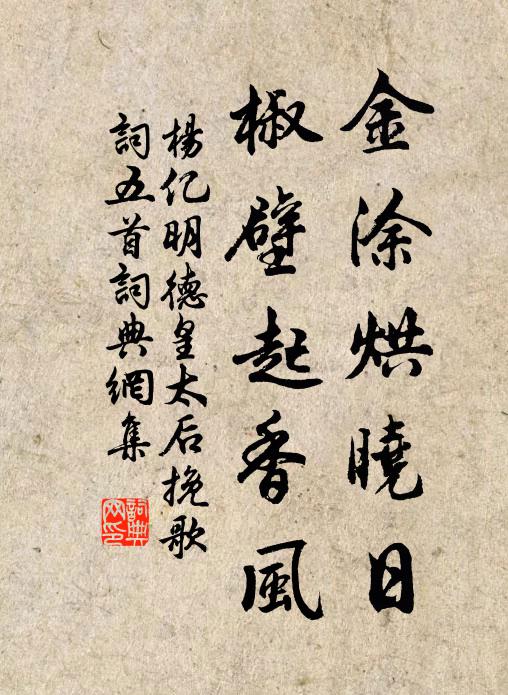 金涂烘曉日
椒壁起香風
楊亿明德皇太后挽歌
詞五首詞典網集
詞典網印